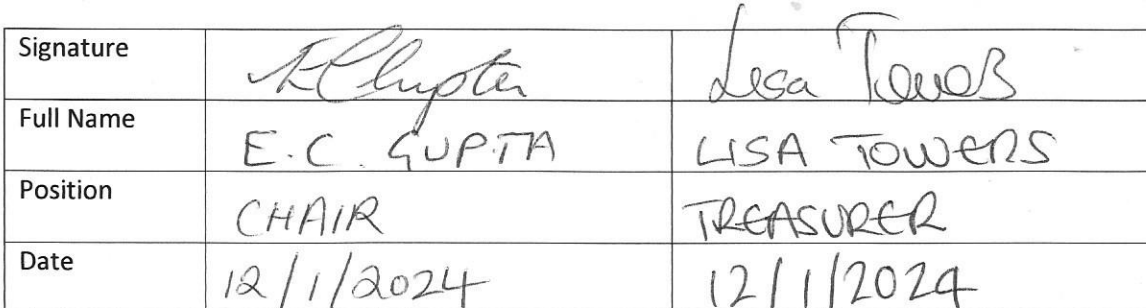 Signature ECGupta Lisa Towers
Full Name E.C. GUPTA LISA TOWERS
Position CHAIR TREASURER
Date 12/1/2024 12/1/2024